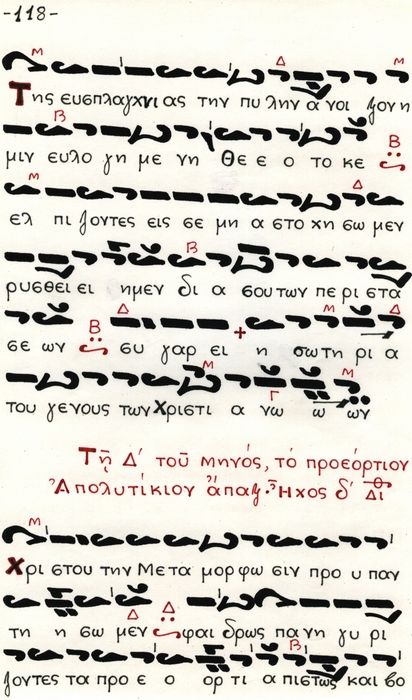 -118-
Μ Δ Μ
Της ευσπλαγχνι ας την πυ λην α νοι ξον η
Β
μιν ευλο γη με νη Θε ε ο το κε Β
Μ Δ
ελ πι ζοντες εις σε μη α στο χη σω μεν
Β
ρυσθει ει ημεν δι α σου των πε ρι στα
Δ Μ Δ
σε ων Β συ γαρ ει η σωτη ρι α
Μ Γ Μ
του γενους των Χριστι α νω ω ων
Τῇ Δ' τοῦ μηνός, τό προεόρτιον
Ἀπολυτίκιον ἅπαξ. Ἦχος δ' Δι
Μ
Χρι στου την Μετα μορ φω σιν προ υ παν
Δ Δ
τη η σω μεν φαι δρως πα νη γυ ρι
Β
ζοντες τα προ ε ο ορ τι α πιστως και βο